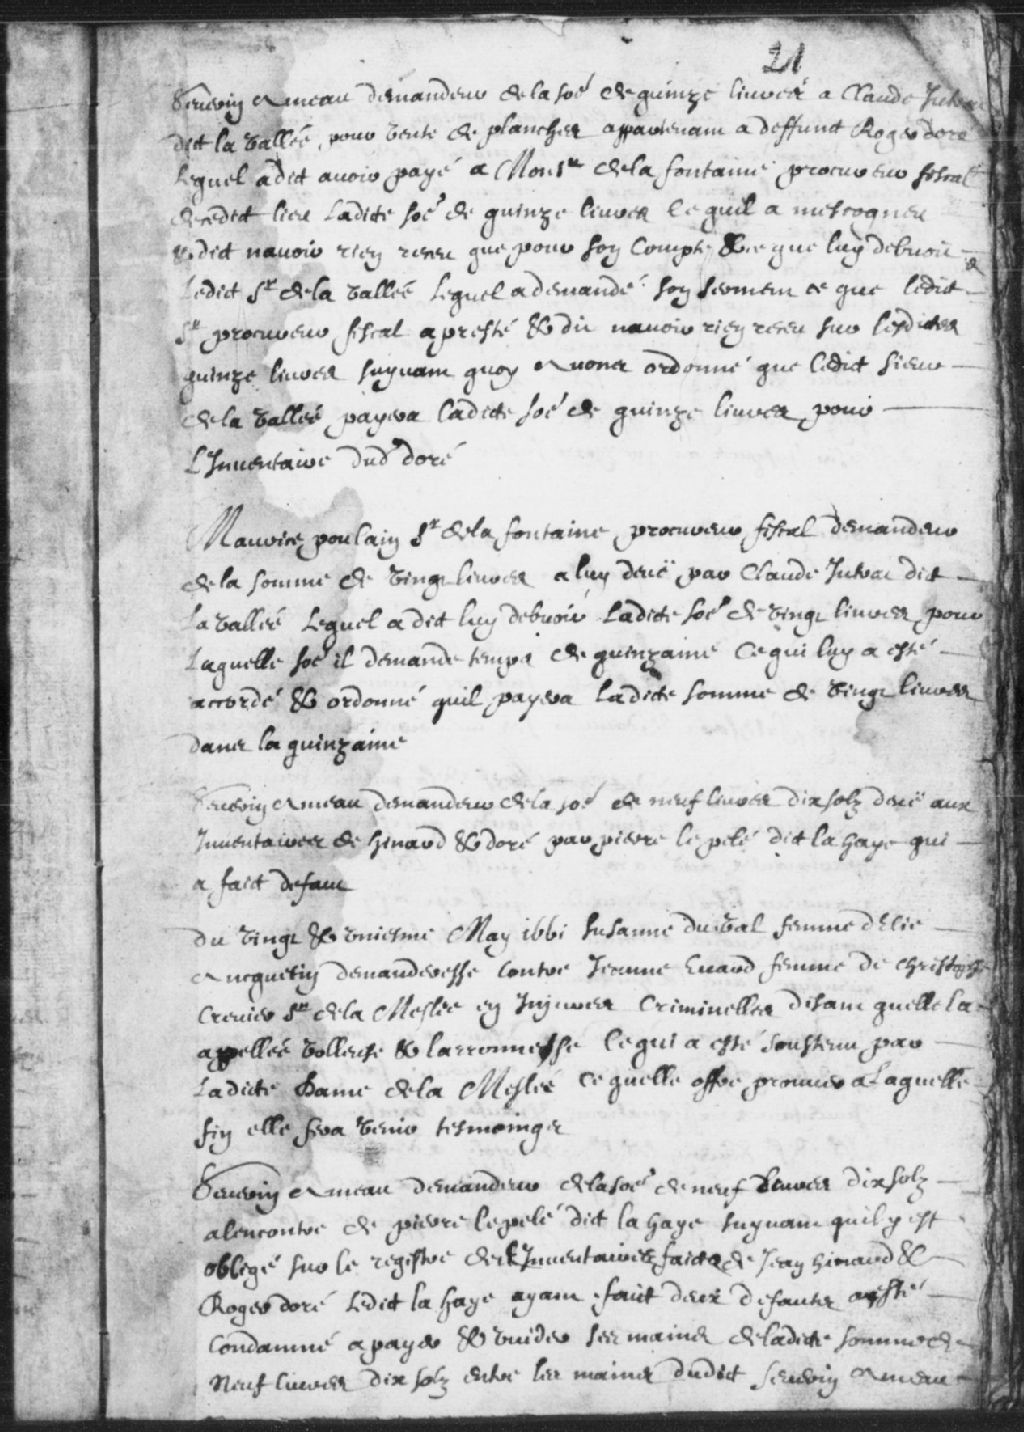 21
Severin Ameau demandeur de la soe de quinze livres a Claude Jutrat
dit la Vallée pour vente de plancher appartenant a deffunct Roger doré
Lequel a dit avoir payé a Monsr de la fontaine procureur fiscal
de cedict lieu Ladicte soe de quinze livres Ce quil a mescogneu
& dict navoir rien receu que pour son Compte & ce que luy debvoit
Ledict Sr de la Vallée Lequel a demandé son serment ce que ledict
Sr procureur fiscal a presté & dit navoir rien receu sur lesdictes
quinze livres suyvant quoy avons ordonné que ledict sieur
de la Vallée payera ladicte soe de quinze livres pour
L'Inventaire dud doré
Maurice poulain Sr de la fontaine procureur fiscal demandeur
de la somme de vingt livres a luy deuë par Claude Jutrat dit
La Vallée Lequel a dit luy debvoir Ladicte soe de vingt livres pour
Laquelle soe il demande temps de quinzaine Ce qui luy a esté
accordé & ordonné quil payera ladicte somme de vingt livres
dans la quinzaine
Severin Ameau demandeur de la soe de neuf livres dix solz deuë aux
Inventaires de hinaud & doré par pierre le pelé dit la haye qui
a faict defaut
du vingt & uniesme May 1661 Susanne du Val femme d'Elie
Ancquetin demanderesse Contre Jeanne Enard femme de Christophe
Crevier Sr de la Meslée en Injures Criminelles disant quelle la
appellée volleuse & larronnesse Ce qui a esté soustenu par
Ladicte Dame de la Meslée Ce quelle offre prouver a Laquelle
fin elle fera venir tesmoings
Severin Ameau demandeur de la soe de neuf livres dix solz
alencontre de pierre le pelé dict la haye suyvant quil y est
obligé sur le registre des Inventaires faicts de Jean hinaud &
Roger doré Ledict la haye ayant faict deux defautes a esté
Condamné a payer & vuider ses mains de ladicte somme de
Neuf livres dix solz entre les mains dudict Severin Ameau